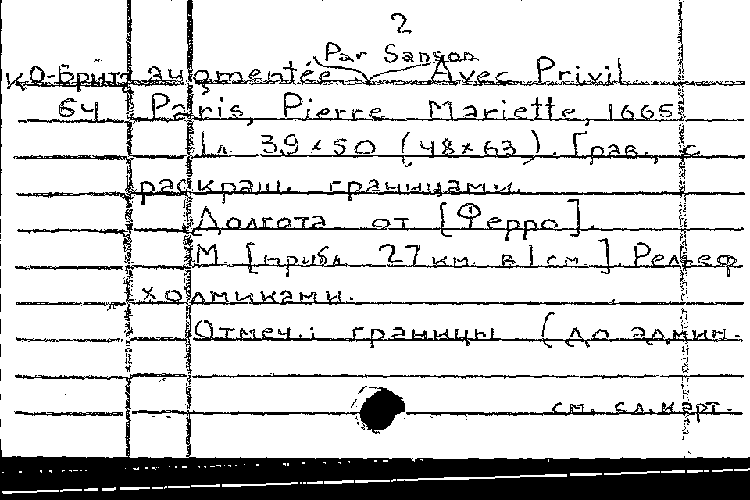 2
Par Sanson
КО-Брит augmentée Avec Privil
64 Paris, Pierre Mariette, 1665
1 л. 39×50 (48×63). Грав., с
раскраш. границами.
Долгота от [Ферро].
М. [прибл. 27 км. в 1 см.] Рельеф
холмиками.
Отмеч.: границы (до админ.
см. сл. карт.